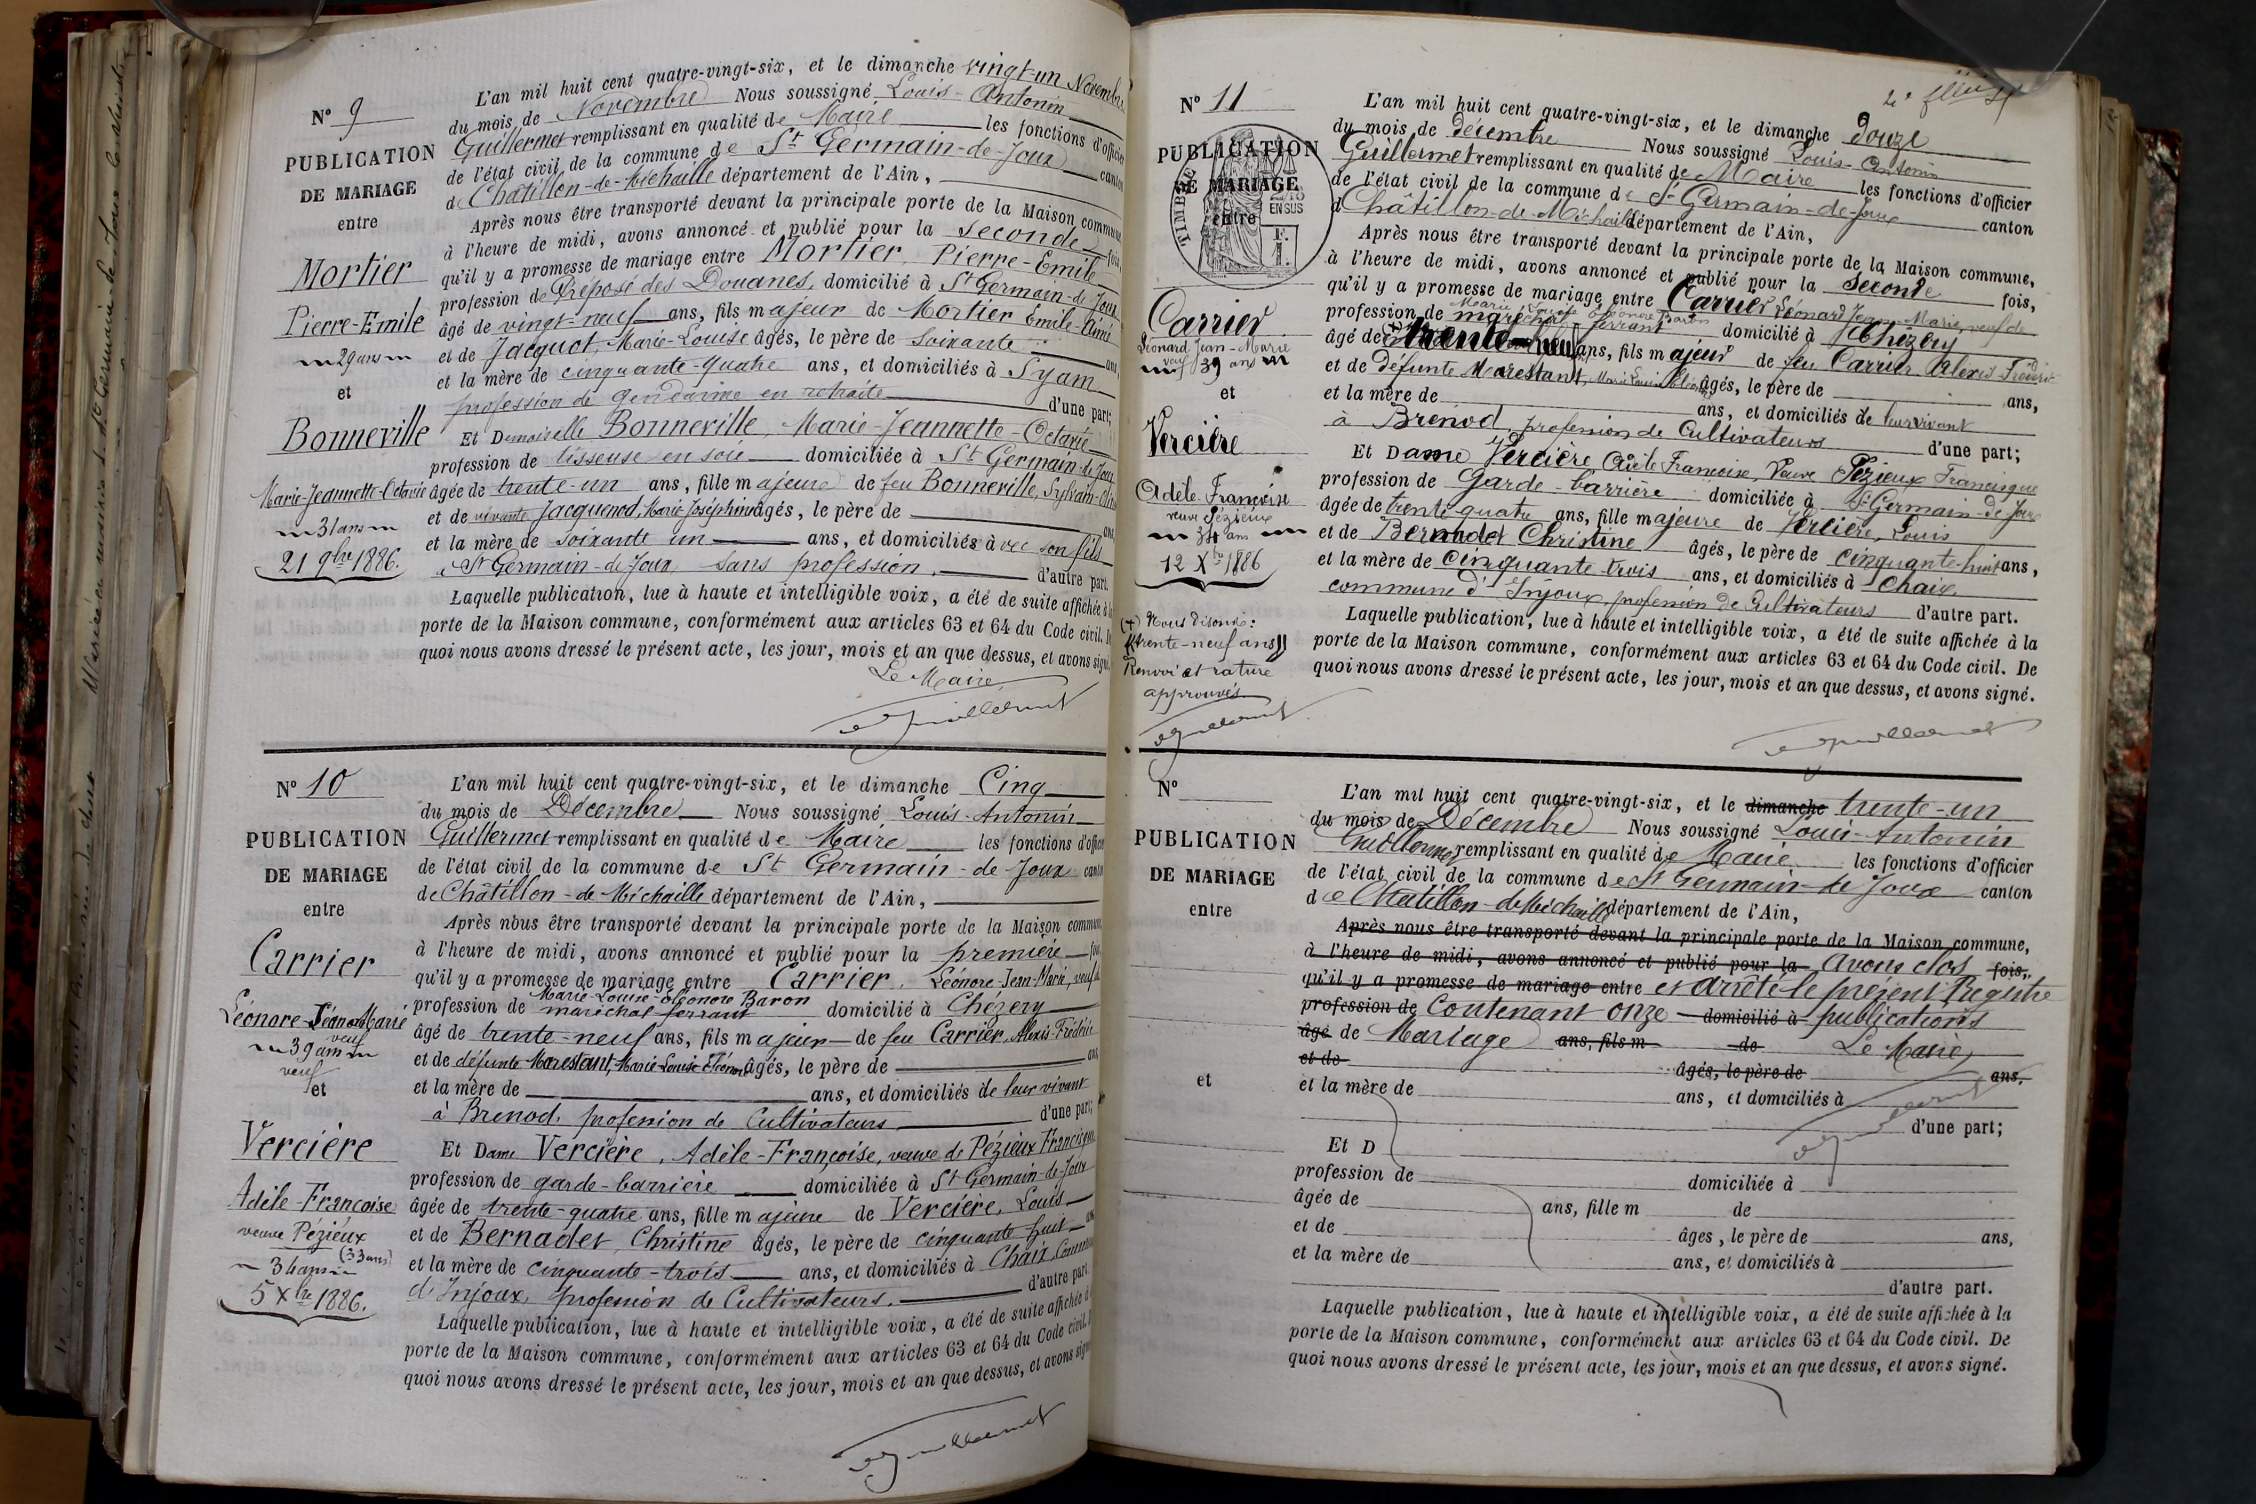 Nº 9
PUBLICATION
DE MARIAGE
entre
Mortier
Pierre-Emile
29 ans
et
Bonneville
Marie-Jeannette-Octavie
31 ans
21 9bre 1886.
L'an mil huit cent quatre-vingt-six, et le dimanche vingt-un Novembre
du mois de Novembre Nous soussigné Louis-Antonin
Guillermet remplissant en qualité de Maire les fonctions d'officier
de l'état civil de la commune de St Germain-de-Joux canton
de Châtillon-de-Michaille département de l'Ain,
Après nous être transporté devant la principale porte de la Maison commune,
à l'heure de midi, avons annoncé et publié pour la seconde fois,
qu'il y a promesse de mariage entre Mortier, Pierre-Emile
profession de Préposé des Douanes, domicilié à St Germain-de-Joux
âgé de vingt-neuf ans, fils majeur de Mortier Emile-Aimé
et de Jacquot, Marie-Louise âgés, le père de soixante ans,
et la mère de cinquante-quatre ans, et domiciliés à Syam
profession de gendarme en retraite d'une part;
Et Demoiselle Bonneville, Marie-Jeannette-Octavie
profession de tisseuse en soie domiciliée à St Germain-de-Joux
âgée de trente-un ans, fille majeure de feu Bonneville, Sylvain
et de vivante Jacquenod, Marie Joséphine âgés, le père de ans,
et la mère de soixante un ans, et domiciliés avec son fils
à St Germain-de-Joux sans profession, d'autre part.
Laquelle publication, lue à haute et intelligible voix, a été de suite affichée à la
porte de la Maison commune, conformément aux articles 63 et 64 du Code civil. De
quoi nous avons dressé le présent acte, les jour, mois et an que dessus, et avons signé.
Le Maire,
Guillermet
Nº 10
PUBLICATION
DE MARIAGE
entre
Carrier
Léonore-Jean-Marie
veuf
39 ans
veuf
et
Vercière
Adèle-Françoise
veuve Pézieux
(33 ans)
34 ans
5 Xbre 1886.
L'an mil huit cent quatre-vingt-six, et le dimanche Cinq
du mois de Décembre Nous soussigné Louis-Antonin
Guillermet remplissant en qualité de Maire les fonctions d'officier
de l'état civil de la commune de St Germain-de-Joux canton
de Châtillon-de-Michaille département de l'Ain,
Après nous être transporté devant la principale porte de la Maison commune,
à l'heure de midi, avons annoncé et publié pour la première fois,
qu'il y a promesse de mariage entre Carrier, Léonore-Jean-Marie, veuf de
Marie-Louise-Eléonore Baron
profession de maréchal ferrant domicilié à Chézery
âgé de trente-neuf ans, fils majeur de feu Carrier, Alexis-Frédéric
et de défunte Marestant, Marie-Louise Eléonore âgés, le père de ans,
et la mère de ans, et domiciliés de leur vivant
à Brenod, profession de Cultivateurs d'une part;
Et Dame Vercière, Adèle-Françoise, veuve de Pézieux Francisque
profession de garde-barrière domiciliée à St Germain-de-Joux
âgée de trente-quatre ans, fille majeure de Vercière, Louis
et de Bernadet Christine âgés, le père de cinquante huit ans
et la mère de cinquante-trois ans, et domiciliés à Chaix, Commune
d'Injoux, profession de Cultivateurs. d'autre part.
Laquelle publication, lue à haute et intelligible voix, a été de suite affichée à la
porte de la Maison commune, conformément aux articles 63 et 64 du Code civil. De
quoi nous avons dressé le présent acte, les jour, mois et an que dessus, et avons signé
Guillermet
Nº 11
PUBLICATION
DE MARIAGE
entre
TIMBRE
EN SUS
Carrier
Léonard Jean-Marie
veuf 39 ans
et
Vercière
Adèle Françoise
veuve Pézieux
34 ans
12 Xbre 1886
(+) Nous disons:
"trente-neuf ans"
Renvoi et rature
approuvés
Guillermet
L'an mil huit cent quatre-vingt-six, et le dimanche Douze
du mois de Décembre Nous soussigné Louis-Antonin
Guillermet remplissant en qualité de Maire les fonctions d'officier
de l'état civil de la commune de St Germain-de-Joux canton
d Châtillon-de-Michaille département de l'Ain,
Après nous être transporté devant la principale porte de la Maison commune,
à l'heure de midi, avons annoncé et publié pour la seconde fois,
qu'il y a promesse de mariage entre Carrier Léonard Jean-Marie, veuf de
Marie Louise Eléonore Baron
profession de maréchal-ferrant domicilié à Chézery
âgé de (+) trente-neuf ans, fils majeur de feu Carrier Alexis-Frédéric
et de défunte Marestant, Marie Louise Eléonore âgés, le père de ans,
et la mère de ans, et domiciliés de leur vivant
à Brenod, profession de Cultivateurs d'une part;
Et Dame Vercière, Adèle Françoise, Veuve Pézieux Francisque
profession de Garde-barrière domiciliée à St Germain-de-Joux
âgée de trente-quatre ans, fille majeure de Vercière, Louis
et de Bernadet Christine âgés, le père de cinquante-huit ans,
et la mère de cinquante-trois ans, et domiciliés à Chaix,
commune d'Injoux, profession de Cultivateurs d'autre part.
Laquelle publication, lue à haute et intelligible voix, a été de suite affichée à la
porte de la Maison commune, conformément aux articles 63 et 64 du Code civil. De
quoi nous avons dressé le présent acte, les jour, mois et an que dessus, et avons signé.
Guillermet
Nº
PUBLICATION
DE MARIAGE
entre
et
L'an mil huit cent quatre-vingt-six, et le dimanche trente-un
du mois de Décembre Nous soussigné Louis-Antonin
Guillermet remplissant en qualité de Maire les fonctions d'officier
de l'état civil de la commune de St Germain-de-Joux canton
de Châtillon-de-Michaille département de l'Ain,
Après nous être transporté devant la principale porte de la Maison commune,
à l'heure de midi, avons annoncé et publié pour la avons clos fois,
qu'il y a promesse de mariage entre et arrêté le présent Registre
profession de Contenant onze domicilié à publications
âgé de Mariage ans, fils m de Le Maire,
et de âgés, le père de ans,
et la mère de ans, et domiciliés à
Guillermet
d'une part;
Et D
profession de domiciliée à
âgée de ans, fille m de
et de âgés, le père de ans,
et la mère de ans, et domiciliés à
d'autre part.
Laquelle publication, lue à haute et intelligible voix, a été de suite affichée à la
porte de la Maison commune, conformément aux articles 63 et 64 du Code civil. De
quoi nous avons dressé le présent acte, les jour, mois et an que dessus, et avons signé.